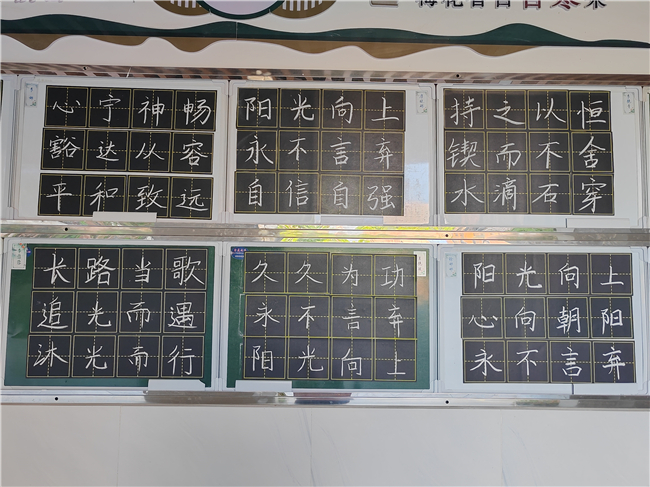 梅花香自苦寒来
心宁神畅
豁达从容
平和致远
阳光向上
永不言弃
自信自强
持之以恒
锲而不舍
水滴石穿
长路当歌
追光而遇
沐光而行
久久为功
永不言弃
阳光向上
阳光向上
心向朝阳
永不言弃